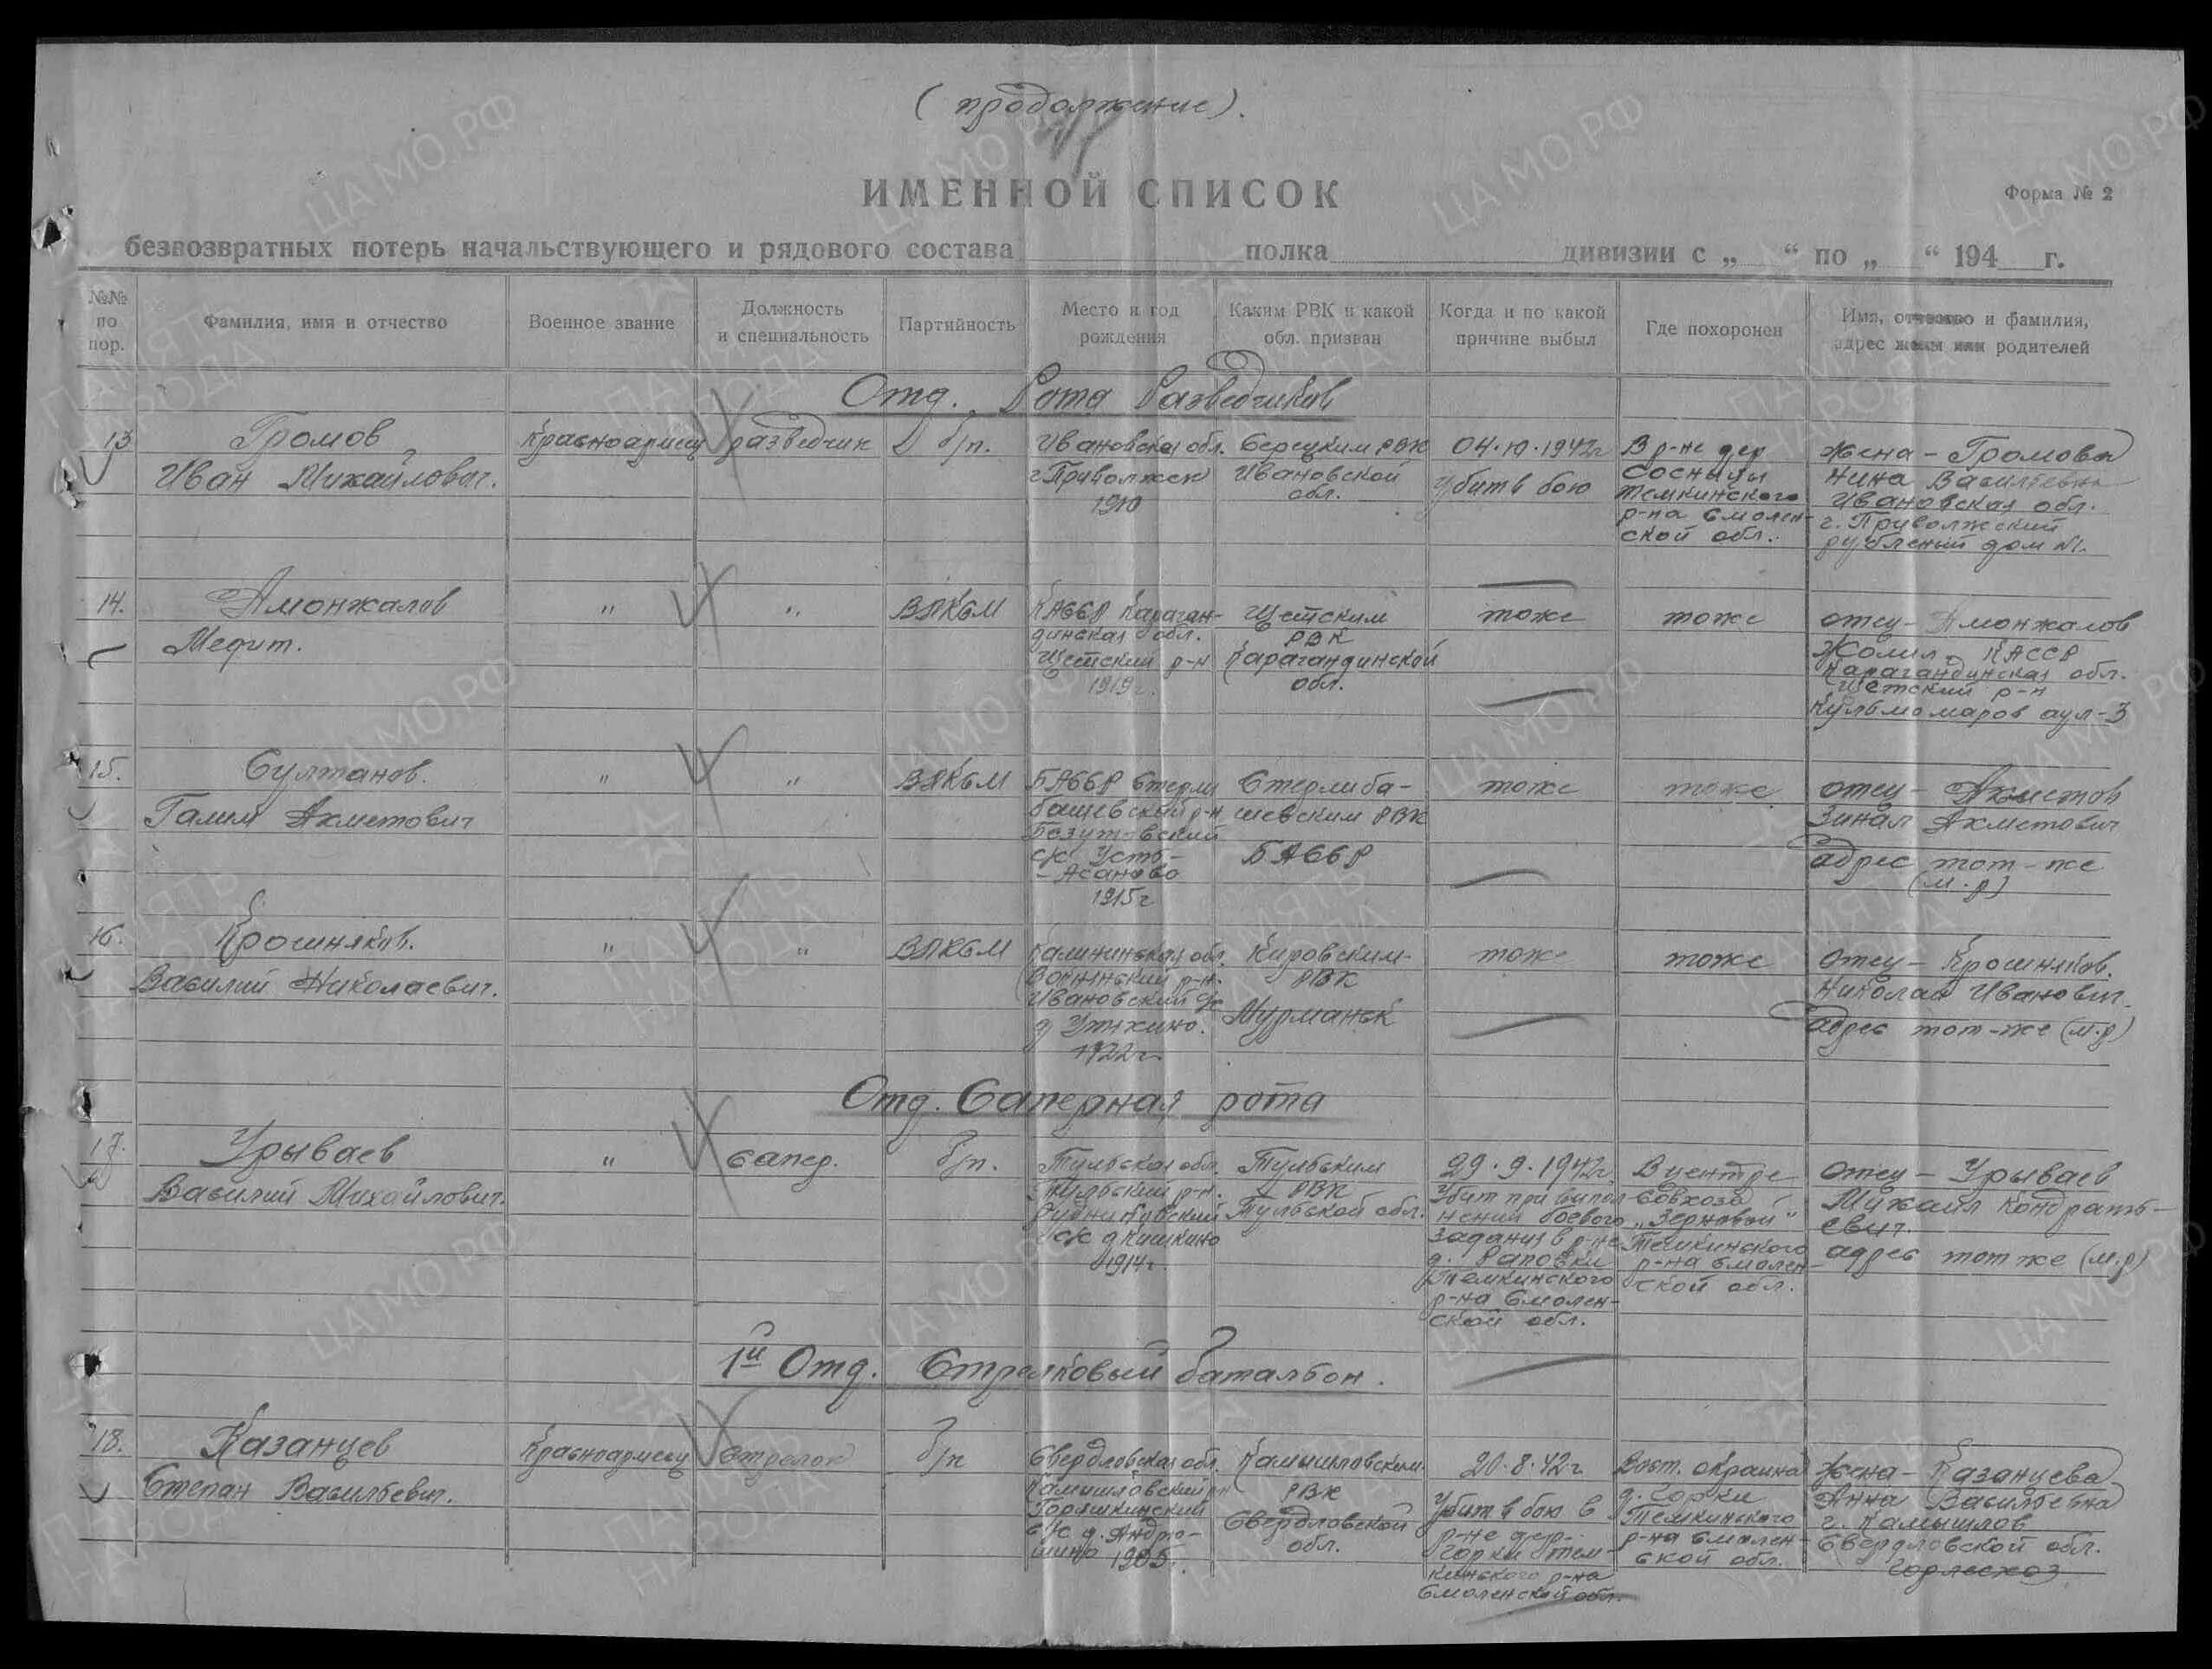 (продолжение).
ИМЕННОЙ СПИСОК
Форма № 2
безвозвратных потерь начальствующего и рядового состава полка дивизии с „ “ по „ “ 194 г.
№№ по пор.
Фамилия, имя и отчество
Военное звание
Должность и специальность
Партийность
Место и год рождения
Каким РВК и какой обл. призван
Когда и по какой причине выбыл
Где похоронен
Имя, отчество и фамилия, адрес жены или родителей
Отд. Рота Разведчиков
13
Громов
Иван Михайлович.
Красноармеец
разведчик
б/п.
Ивановская обл.
г. Приволжск
1910
РВК
Ивановской
обл.
04.10.1942г
Убит в бою
В р-не дер
Сосницы
Темкинского
р-на Смолен-
ской обл.
жена - Громова
Нина Васильевна
Ивановская обл.
г. Приволжский
рубленый дом №1.
14.
Амонжалов
Медит.
"
"
ВЛКСМ
КАССР Караган-
динская обл.
Щетский р-н
1919г.
Щетским
РВК
Карагандинской
обл.
тоже
тоже
отец - Амонжалов
Жолил КАССР
Карагандинская обл.
Щетский р-н
аул-3
15.
Султанов.
Галим Ахметович
"
"
ВЛКСМ
БАССР Стерли
башевский р-н
с/с Усть-
- Асаново
1915г
Стерлиба-
шевским РВК
БАССР
тоже
тоже
отец - Ахметов
Зинал Ахметович
адрес тот-же
(м.р)
16.
Крошняков.
Василий Николаевич.
"
"
ВЛКСМ
Калининская обл.
р-н.
Ивановский с/с
д Утехино.
1922г.
Кировским
РВК
Мурманск
тоже
тоже
отец - Крошняков.
Николай Иванович.
адрес тот-же (м.р)
Отд. Саперная рота
17.
Урываев
Василий Михайлович.
"
сапер.
б/п.
Тульская обл.
Тульский р-н.
с/с д Кишкино
1914г.
Тульским
РВК
Тульской обл.
29.9.1942г
Убит при выпол-
нении боевого
задания в р-не
д. Раповки
Темкинского
р-на Смолен-
ской обл.
В центре
совхоза
„Зерновой"
Темкинского
р-на Смолен-
ской обл.
отец - Урываев
Михаил Кондрать-
евич.
адрес тот же (м.р)
1й Отд. Стрелковый батальон.
18.
Казанцев
Степан Васильевич.
Красноармеец
стрелок
б/п
Свердловская обл.
Камышловский р-н
с/с д. Андрю-
шино 1905г.
Камышловским
РВК
Свердловской
обл.
20.8.42г
Убит в бою в
р-не дер.
Горки Тем-
кинского р-на
Смоленской обл.
Вост. окраина
д. Горки
Темкинского
р-на Смолен-
ской обл.
жена - Казанцева
Анна Васильевна
г. Камышлов
Свердловской обл.
горлесхоз
ЦА МО РФ
ПАМЯТЬ НАРОДА